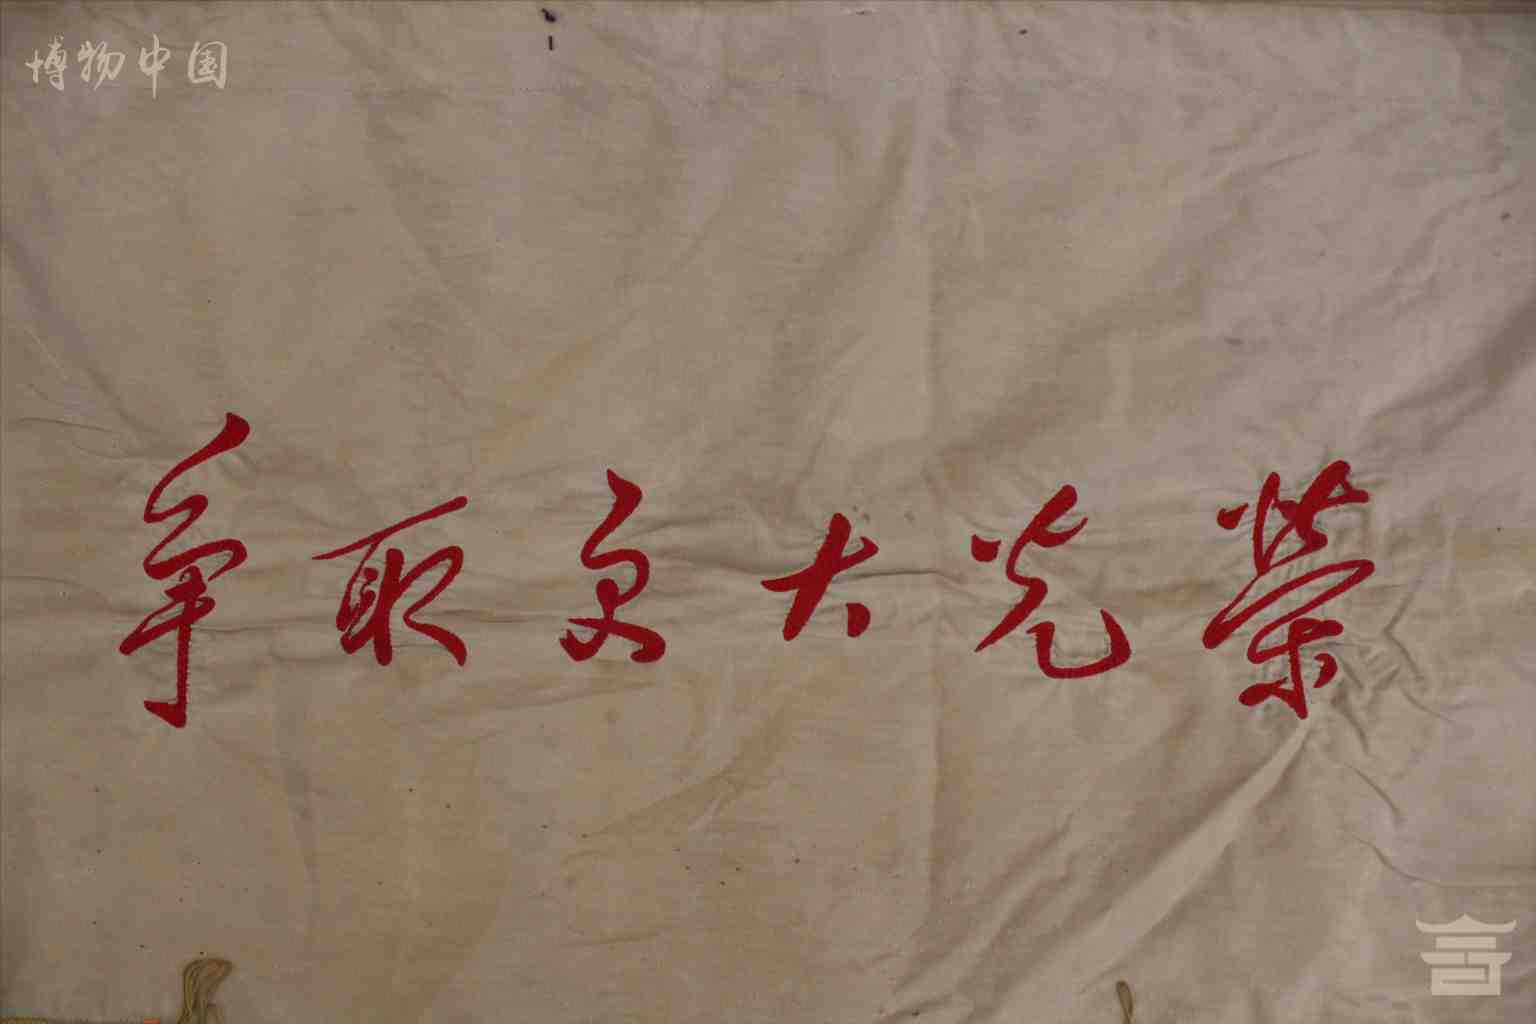 博物中国
争取更大光荣